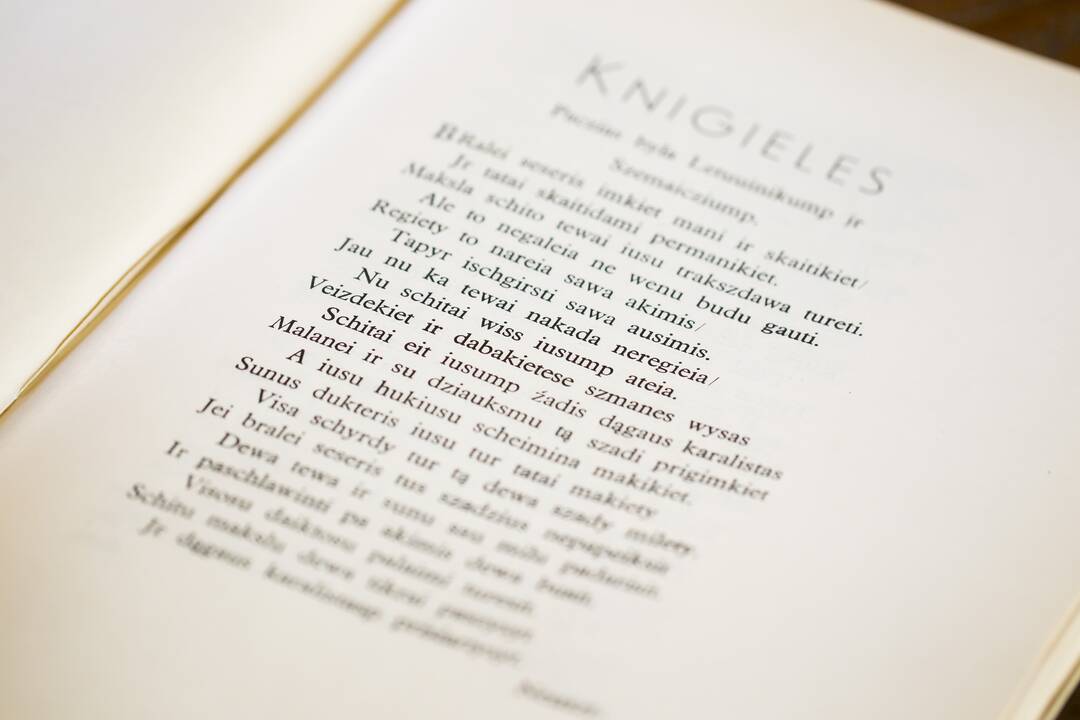 KNIGIELES
Paczias byla Letuuinikump ir
Szemaicziump.
BRalei seseris imkiet mani ir skaitikiet/
Jr tatai skaitidami permanikiet.
Maksla schito tewai iusu trakszdawa tureti.
Ale to negaleia ne wenu budu gauti.
Regiety to nareia sawa akimis/
Tapyr ischgirsti sawa ausimis.
Jau nu ka tewai nakada neregieia/
Nu schitai wiss iusump ateia.
Veizdekiet ir dabakietese szmanes wysas
Schitai eit iusump źadis dągaus karalistas
Malanei ir su dziauksmu tą szadi priigimkiet
A iusu hukiusu scheimina makikiet.
Sunus dukteris iusu tur tatai makiety
Visa schyrdy tur tą dewa szady milety.
Jei bralei seseris tus szadzius nepapeiksit
Dewa tewa ir sunu sau milu padarisit.
Ir paschlawinti pa akimis dewa busit.
Visosu daiktosu palaimi turesit.
Schitu makslu dewa tikrai
Jr dągaus karalistasp